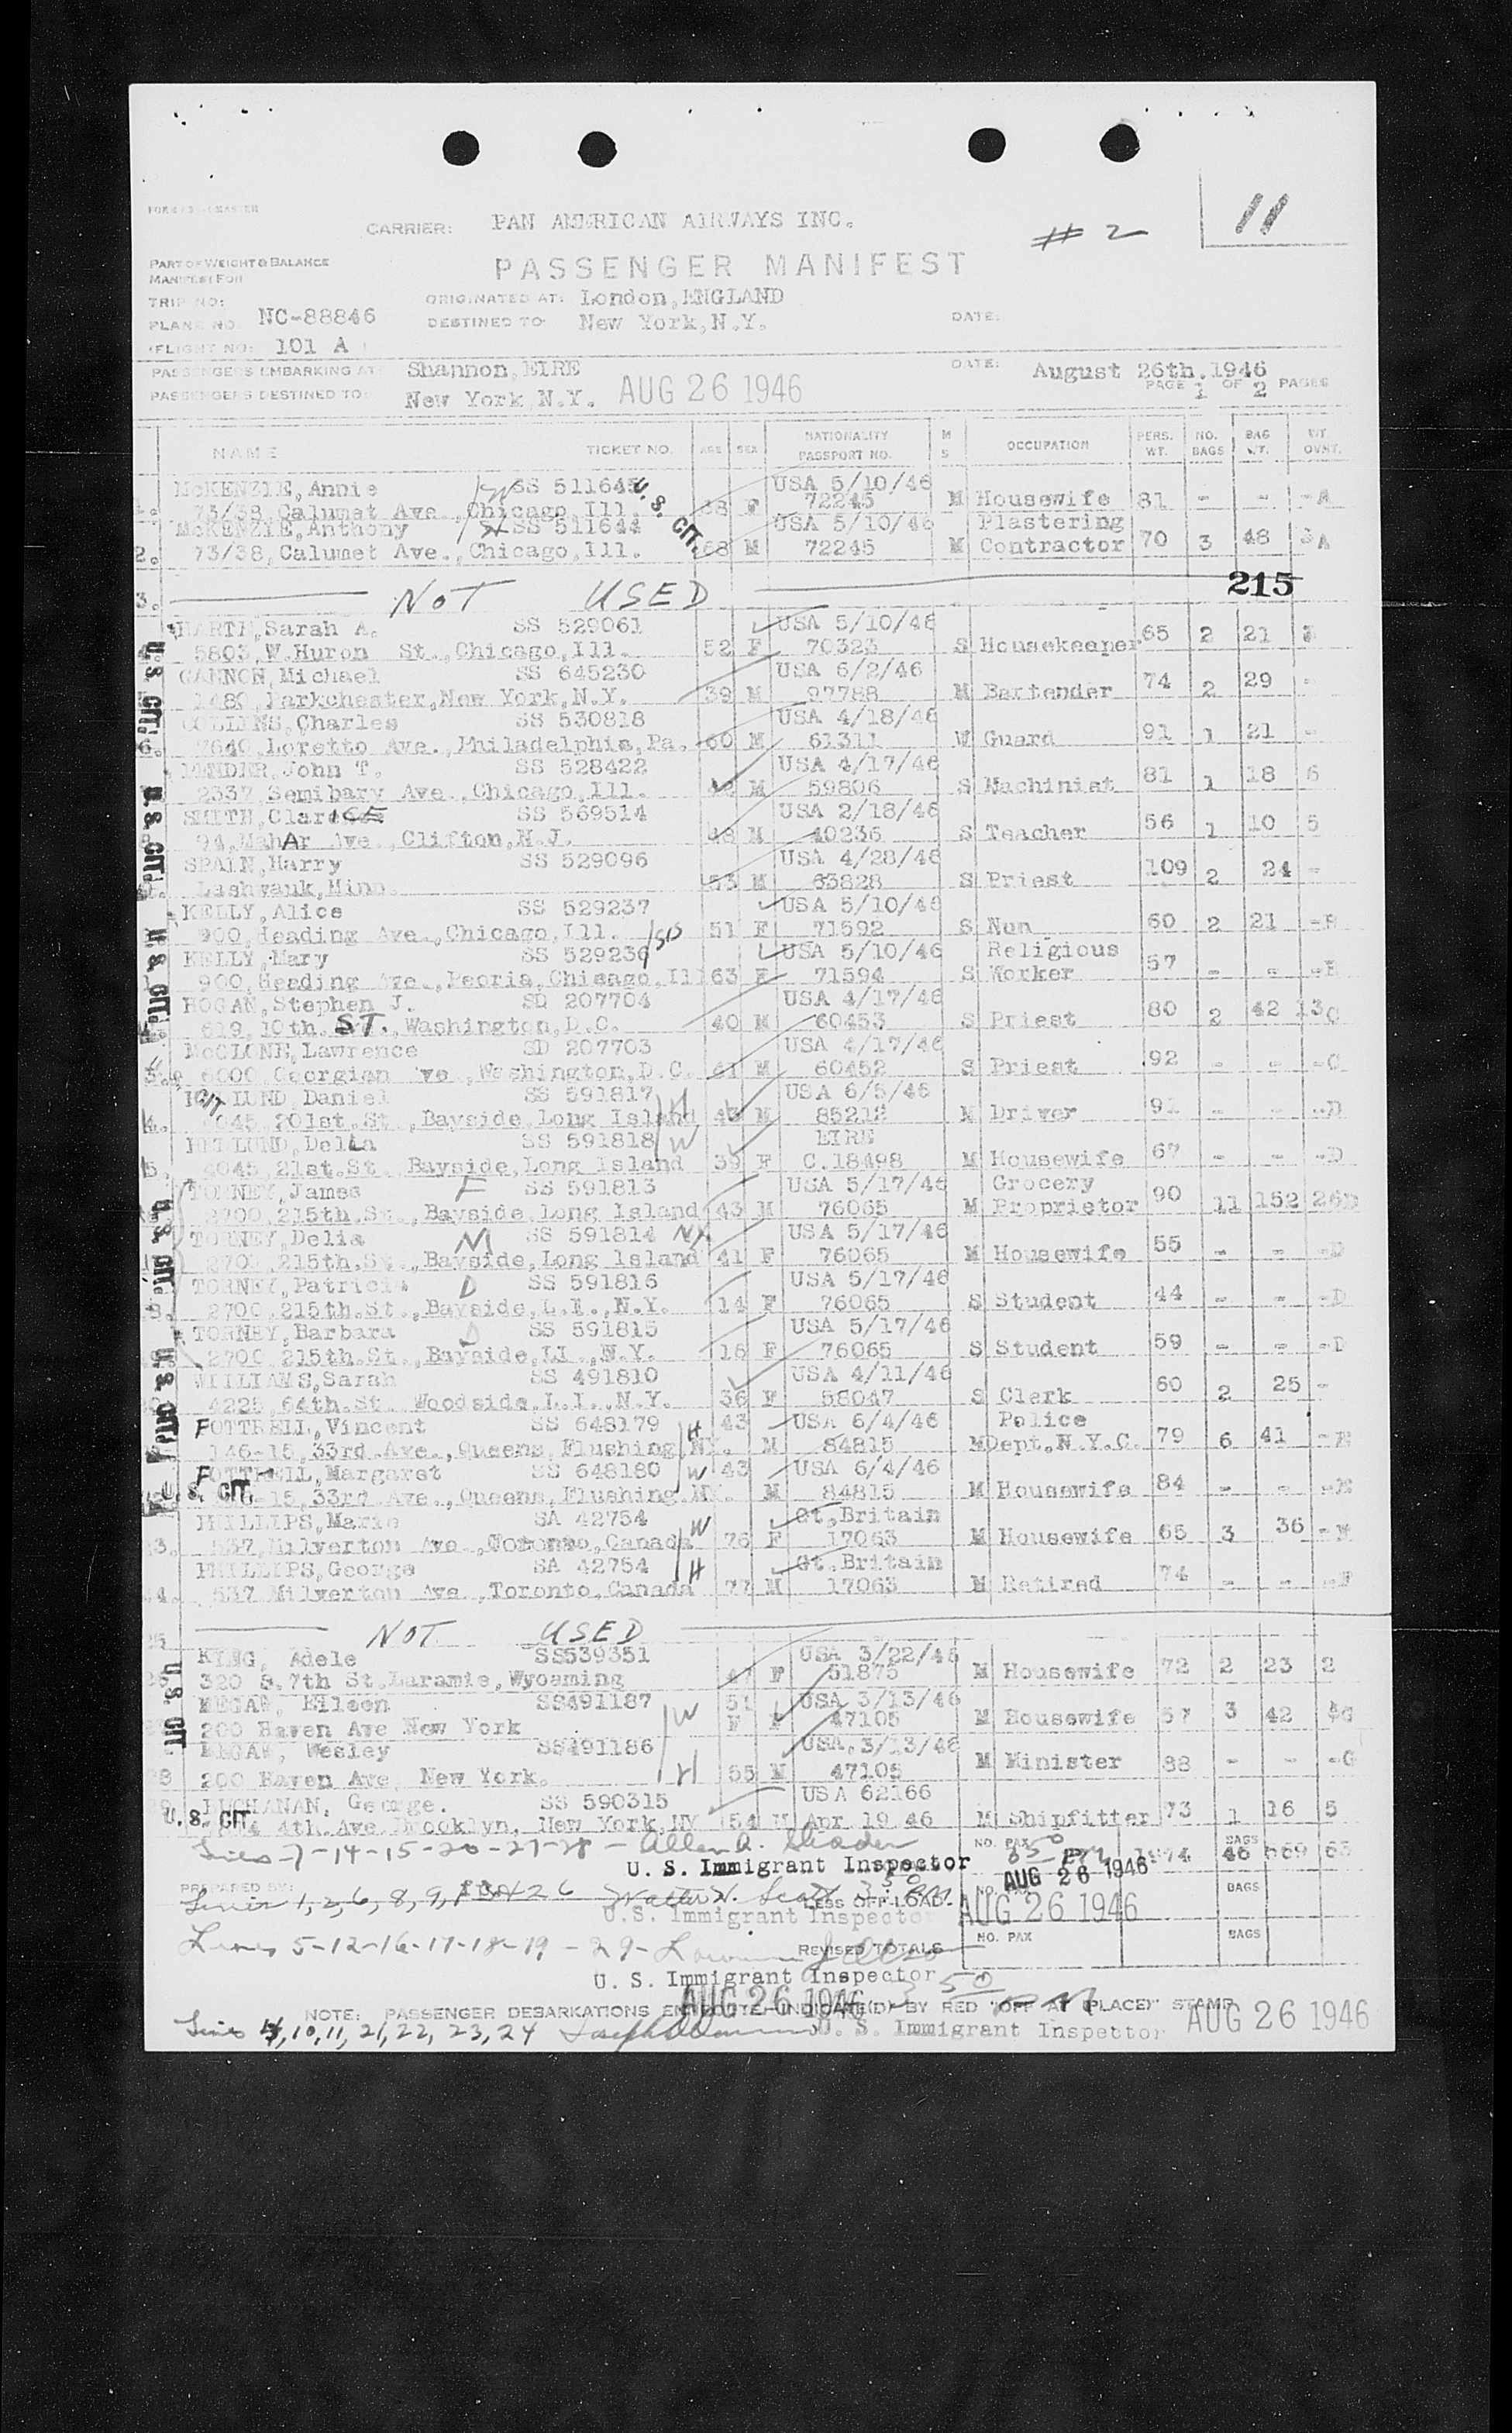 # 2
11
CARRIER: PAN AMERICAN AIRWAYS INC.
PART OF WEIGHT & BALANCE
MANIFEST FOR
PASSENGER MANIFEST
TRIP NO:
ORIGINATED AT: London, ENGLAND
PLANE NO. NC-88846
DESTINED TO: New York, N.Y.
DATE:
FLIGHT NO: 101 A
PASSENGERS EMBARKING AT: Shannon, EIRE
DATE: August 26th. 1946
PASSENGERS DESTINED TO: New York N.Y. AUG 26 1946
PAGE 1 OF 2 PAGES
NAME TICKET NO. AGE SEX NATIONALITY PASSPORT NO. M S OCCUPATION PERS. WT. NO. BAGS BAG WT. WT. OVWT.
McKENZIE, Annie W SS 511645 USA 5/10/46
73/38, Calumet Ave., Chicago, Ill. F 72245 M Housewife 81 - - - A
McKENZIE, Anthony H SS 511644 USA 5/10/46 Plastering
2. 73/38, Calumet Ave., Chicago, Ill. 68 M 72245 M Contractor 70 3 48 A
U. S. CIT.
3. NOT USED 215
HARTE, Sarah A. SS 529061 USA 5/10/46
5803, W. Huron St., Chicago, Ill. 52 F 70323 S Housekeeper 65 2 21
GANNON, Michael SS 645230 USA 6/2/46
1480, Parkchester, New York, N.Y. 39 M 97788 M Bartender 74 2 29 -
COLLINS, Charles SS 530818 USA 4/18/46
6. 7640, Loretto Ave., Philadelphia, Pa. 60 M 61311 W Guard 91 1 21 -
John T. SS 528422 USA 4/17/46
2337, Ave., Chicago, Ill. M 59806 S Machinist 81 1 18 6
SMITH, Clarice SS 569514 USA 2/18/46
94, MahAr Ave., Clifton, N.J. 48 M 40236 S Teacher 56 1 10 5
SPAIN, Harry SS 529096 USA 4/28/46
Minn. 53 M 63828 S Priest 109 2 24 -
KELLY, Alice SS 529237 USA 5/10/46
900, Heading Ave., Chicago, Ill. 51 F 71592 S Nun 60 2 21 -
KELLY, Mary SS 529236 USA 5/10/46 Religious
900, Heading Ave., Peoria, Chicago, Ill 63 F 71594 S Worker 57 - - -
HOGAN, Stephen J. SD 207704 USA 4/17/46
619, 10th. ST., Washington, D.C. 40 M 60453 S Priest 80 2 42 13 C
McGLONE, Lawrence SD 207703 USA 4/17/46
6000 Georgian Ave., Washington, D.C. 41 M 60452 S Priest 92 - - - C
Daniel SS 591817 H USA 6/5/46
4. 4045, 201st. St., Bayside Long Island M 85212 M Driver 91 - - - D
DelLa SS 591818 W EIRE
5. 4045, 21st. St. Bayside, Long Island 39 F C.18498 M Housewife 67 - - - D
TORNEY, James F SS 591813 USA 5/17/46 Grocery
2700, 215th. St., Bayside, Long Island 43 M 76065 M Proprietor 90 11 152 26 D
TORNEY, Delia M SS 591814 NY USA 5/17/46
2700, 215th. St., Bayside, Long Island 41 F 76065 M Housewife 55 - - - D
TORNEY, Patricia D SS 591816 USA 5/17/46
2700, 215th. St., Bayside, L.I., N.Y. 14 F 76065 S Student 44 - - - D
TORNEY, Barbara D SS 591815 USA 5/17/46
2700 215th. St., Bayside, LI., N.Y. 16 F 76065 S Student 59 - - - D
WILLIAMS, Sarah SS 491810 USA 4/11/46
4225, 64th. St. Woodside, L.I. N.Y. 36 F 58047 S Clerk 60 2 25 -
FOTTRELL, Vincent SS 648179 H 43 USA 6/4/46 Police
146-15, 33rd. Ave., Queens, Flushing, NY. M 84815 M Dept. N.Y.C. 79 6 41 - E
FOTTRELL, Margaret SS 648180 W 43 USA 6/4/46
15, 33rd Ave., Queens, Flushing NY. M 84815 M Housewife 84 - - - E
PHILLIPS, Marie SA 42754 W Gt. Britain
3. 537, Milverton Ave., Toronto, Canada 76 F 17063 M Housewife 65 3 36 - F
PHILLIPS, George SA 42754 H Gt. Britain
4. 537 Milverton Ave., Toronto, Canada 77 M 17063 M Retired 74 - - - F
NOT USED
KING, Adele SS539351 USA 3/22/46
320 S. 7th St. Laramie, Wyoming 47 F 51875 M Housewife 72 2 23 2
MEGAW, Eileen SS491187 W 51 USA 3/13/46
200 Haven Ave New York F F 47105 M Housewife 57 3 42 G
MEGAW, Wesley SS491186 H USA, 3/13/46
200 Haven Ave, New York. 55 M 47105 M Minister 88 - - - G
BUCHANAN, George. SS 590315 USA 62166
U. S. CIT. 4th. Ave Brooklyn, New York, NY 54 M Apr 19 46 M Shipfitter 73 1 16 5
Lines - 7-14-15-20-27-28 - Allen A.
NO. PAX BAGS 46 669 63
U. S. Immigrant Inspector AUG 26 1946
PREPARED BY:
Lines 1, 2, 6, 8, 9, 26 Walter N. Scott LESS OFF-LOAD
BAGS
U.S. Immigrant Inspector AUG 26 1946
Lines 5-12-16-17-18-19-29- REVISED TOTALS NO. PAX BAGS
U. S. Immigrant Inspector
AUG 26 1946
NOTE: PASSENGER DEBARKATIONS ENROUTE INDICATE(D) BY RED "OFF AT (PLACE)" STAMP
Lines 4, 10, 11, 21, 22, 23, 24 U. S. Immigrant Inspector AUG 26 1946